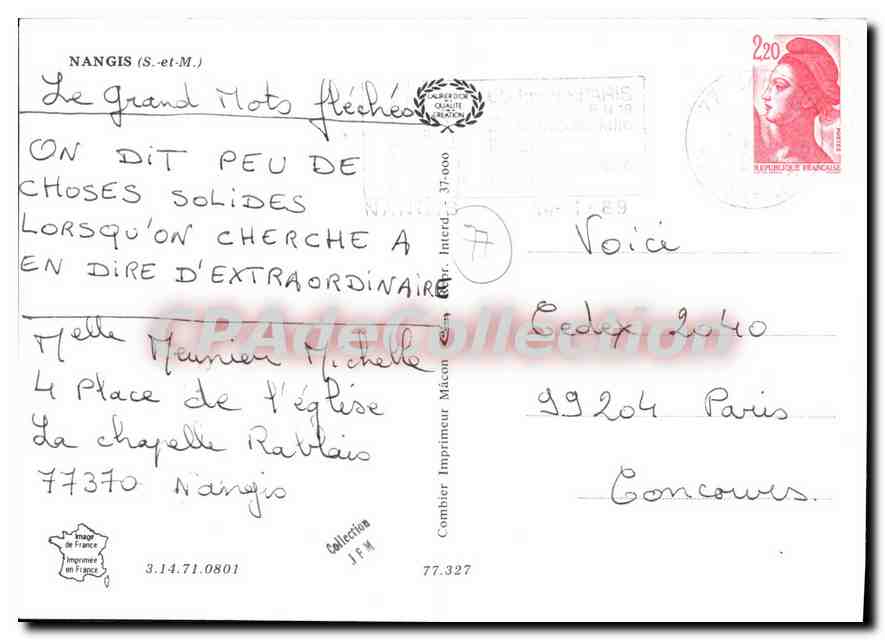 NANGIS (S.-et-M.)
Le Grand Mots fléchés
ON DIT PEU DE
CHOSES SOLIDES
LORSQU'ON CHERCHE A
EN DIRE D'EXTRAORDINAIRE
Melle Meunier Michelle
4 Place de l'église
La chapelle Rablais
77370 Nangis
Image
de France
Imprimée
en France
3.14.71.0801
Collection
J F M
77.327
Combier Imprimeur Mâcon
Repr. Interd. - 37-000
CALIER D'OR
QUALITÉ
CRÉATION
NANGIS
89
PARIS
77
2,20
POSTES
REPUBLIQUE FRANÇAISE
Voici
Cedex 2040
99204 Paris
Concours.
CPAdeCollection